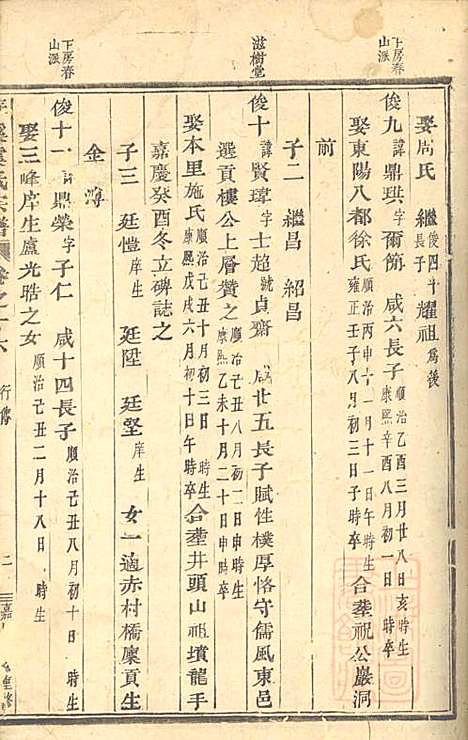 下房春山派
滋樹堂
下房春山派
娶周氏 繼俊四十長子耀祖爲後
俊九諱鼎珙字爾簡 咸六長子順治乙酉三月廿八日亥時生康熙辛酉八月初一日 時卒
娶東陽八都徐氏順治丙申十一月十一日午時生雍正壬子八月初三日子時卒合塟祝公巖洞
前
子二 繼昌 紹昌
俊十諱賢瑋字士超號貞齋 咸廿五長子賦性樸厚恪守儒風東邑
選貢樓公上層贊之順治己丑八月初一日申時生康熙乙未十月二十日申時卒
娶本里施氏順治己丑十月初三日 時生康熙戊戌六月初十日午時卒合塟井頭山祖墳龍手
嘉慶癸酉冬立碑誌之
子三 廷愷庠生 廷陞 廷堅庠生 女一適赤村橋廩貢生
金濤
俊十一諱鼎榮字子仁 咸十四長子順治己丑八月初十日 時生
娶三峰庠生盧光晧之女順治己丑二月十八日 時生
氏宗譜 卷之十六 行傳 二 嘉 重修